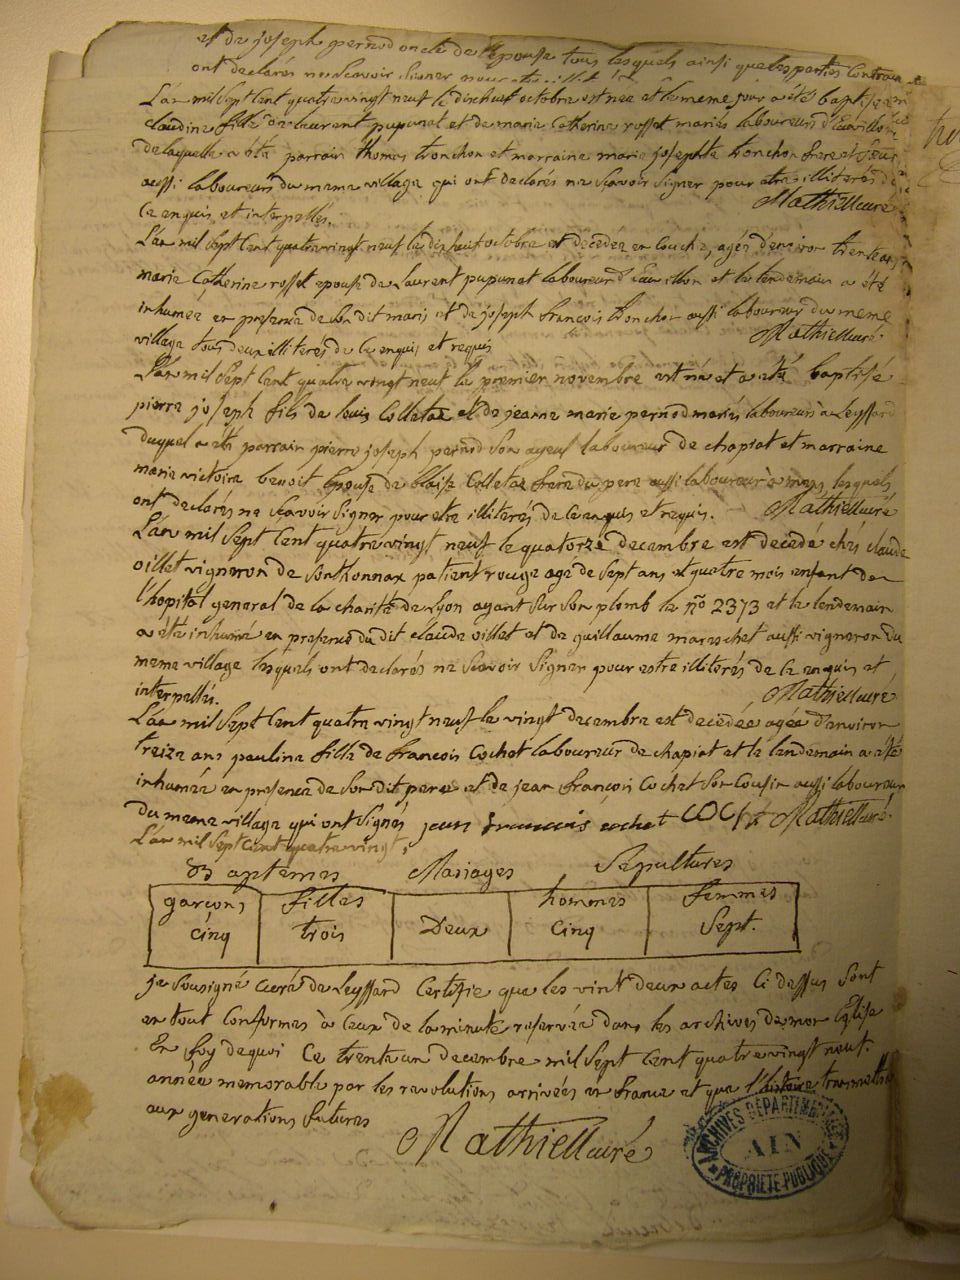 et de joseph pernod oncle de l'epouse tous lesquels ainsi que les parties
ont declarés ne scavoir signer pour
L'an mil sept cent quatre vingt neuf le dixhuit octobre est née et le meme jour a été baptisée
claudine fille de laurent pupunat et de marie catherine rosset mariés laboureurs
de laquelle a été parrain thomas tronchon et marraine marie josephte tronchon frere et
aussi laboureurs du meme village qui ont declarés ne scavoir signer pour etre illiterés de
ce enquis et interpellés. Mathieu curé
L'an mil sept cent quatre vingt neuf le dixhuit octobre est decedée en couche, agée d'environ trente ans
marie catherine rosset epouse de laurent pupunat laboureur et le lendemain a été
inhumée en presence de son dit mari et de joseph françois tronchon aussi laboureur du meme
village tous deux illiterés de ce enquis et requis Mathieu curé
L'an mil sept cent quatre vingt neuf le premier novembre est né et a été baptisé
pierre joseph fils de louis Colletaz et de jeanne marie pernod mariés laboureurs à Leyssard
duquel a été parrain pierre joseph pernod son ayeul laboureur de chapiat et marraine
marie victoire benoit epouse de blaise Colletaz frere du pere aussi laboureur à lesquels
ont declarés ne scavoir signer pour etre illiterés de ce enquis et requis. Mathieu curé
L'an mil sept cent quatre vingt neuf le quatorze decembre est decedé chés claude
oillet vigneron de Sonthonnax patient rouge agé de sept ans et quatre mois enfant de
l'hopital general de la charité de Lyon ayant sur son plomb le nº 2373 et le lendemain
a été inhumé en presence du dit claude oillet et de guillaume mareschet aussi vigneron du
meme village lesquels ont declarés ne scavoir signer pour estre illiterés de ce enquis et
interpellés. Mathieu curé
L'an mil sept cent quatre vingt neuf le vingt decembre est decedée agée d'environ
treize ans pauline fille de françois Cochet laboureur de chapiat et le lendemain a été
inhumée en presence de son dit pere et de jean françois Cochet son cousin aussi laboureur
du meme village qui ont signés jean francois cochet Mathieu curé
L'an mil sept cent quatre vingt,
Baptemes Mariages Sepultures
garçons filles hommes femmes
cinq trois Deux Cinq Sept.
je sousigné curé de Leyssard certifie que les vint deux actes ci dessus sont
en tout conformes à ceux de la minute reservée dans les archives de mon Eglise
En foy dequoi ce trente un decembre mil sept cent quatre vingt neuf.
année memorable par les revolutions arrivées en france et que l'histoire transmettra
aux generations futures
Mathieu curé
ARCHIVES DÉPARTEMENTALES
AIN
PROPRIÉTÉ PUBLIQUE